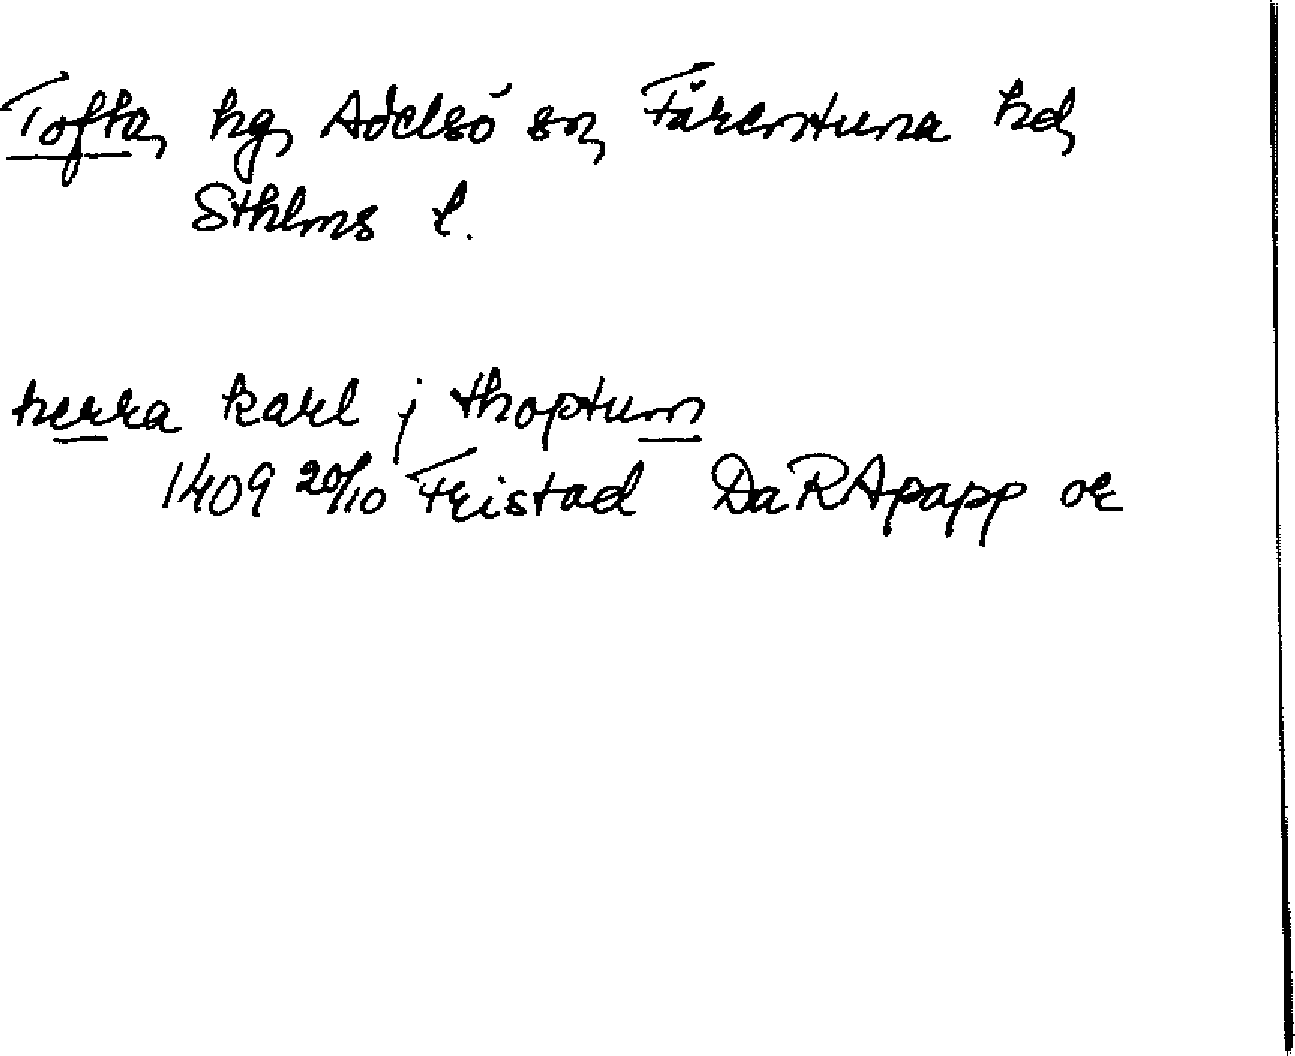 Tofta, hg, Adelsö sn, Färentuna hd,
Sthlms l.
herra karl j thoptum
1409 20/10 Fristad DaRApapp or